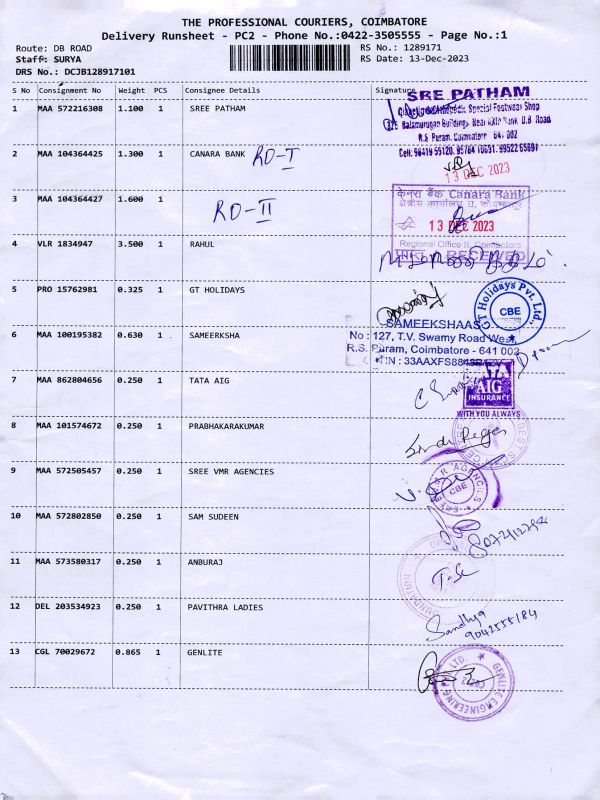 THE PROFESSIONAL COURIERS, COIMBATORE
Delivery Runsheet - PC2 - Phone No.:0422-3505555 - Page No.:1
Route: DB ROAD RS No.: 1289171
Staff: SURYA RS Date: 13-Dec-2023
DRS No.: DCJB128917101
S No Consignment No Weight PCS Consignee Details Signature
1 MAA 572216308 1.100 1 SREE PATHAM
SRE PATHAM
Special Footwear Shop
Balamurugan Buildings, Near Bank D.B Road
R.S Puram, Coimbatore 641 002
Cell: 98419 55120, 95784 10691, 99522 65691
2 MAA 104364425 1.300 1 CANARA BANK RO-I
13 DEC 2023
3 MAA 104364427 1.600 1 RO-II
केनरा बैंक Canara Bank
13 DEC 2023
Regional Office II, Coimbatore
RECEIVED
4 VLR 1834947 3.500 1 RAHUL
5 PRO 15762981 0.325 1 GT HOLIDAYS
GT Holidays Pvt. Ltd.
CBE
6 MAA 100195382 0.630 1 SAMEERKSHA
SAMEEKSHAAS
No : 127, T.V. Swamy Road West,
R.S. Puram, Coimbatore - 641 002
7 MAA 862804656 0.250 1 TATA AIG
TATA
AIG
INSURANCE
WITH YOU ALWAYS
8 MAA 101574672 0.250 1 PRABHAKARAKUMAR
9 MAA 572505457 0.250 1 SREE VMR AGENCIES
CBE
10 MAA 572802850 0.250 1 SAM SUDEEN
11 MAA 573580317 0.250 1 ANBURAJ
12 DEL 203534923 0.250 1 PAVITHRA LADIES
Sandhya
9042555184
13 CGL 70029672 0.865 1 GENLITE
GENLITE ENGINEERING